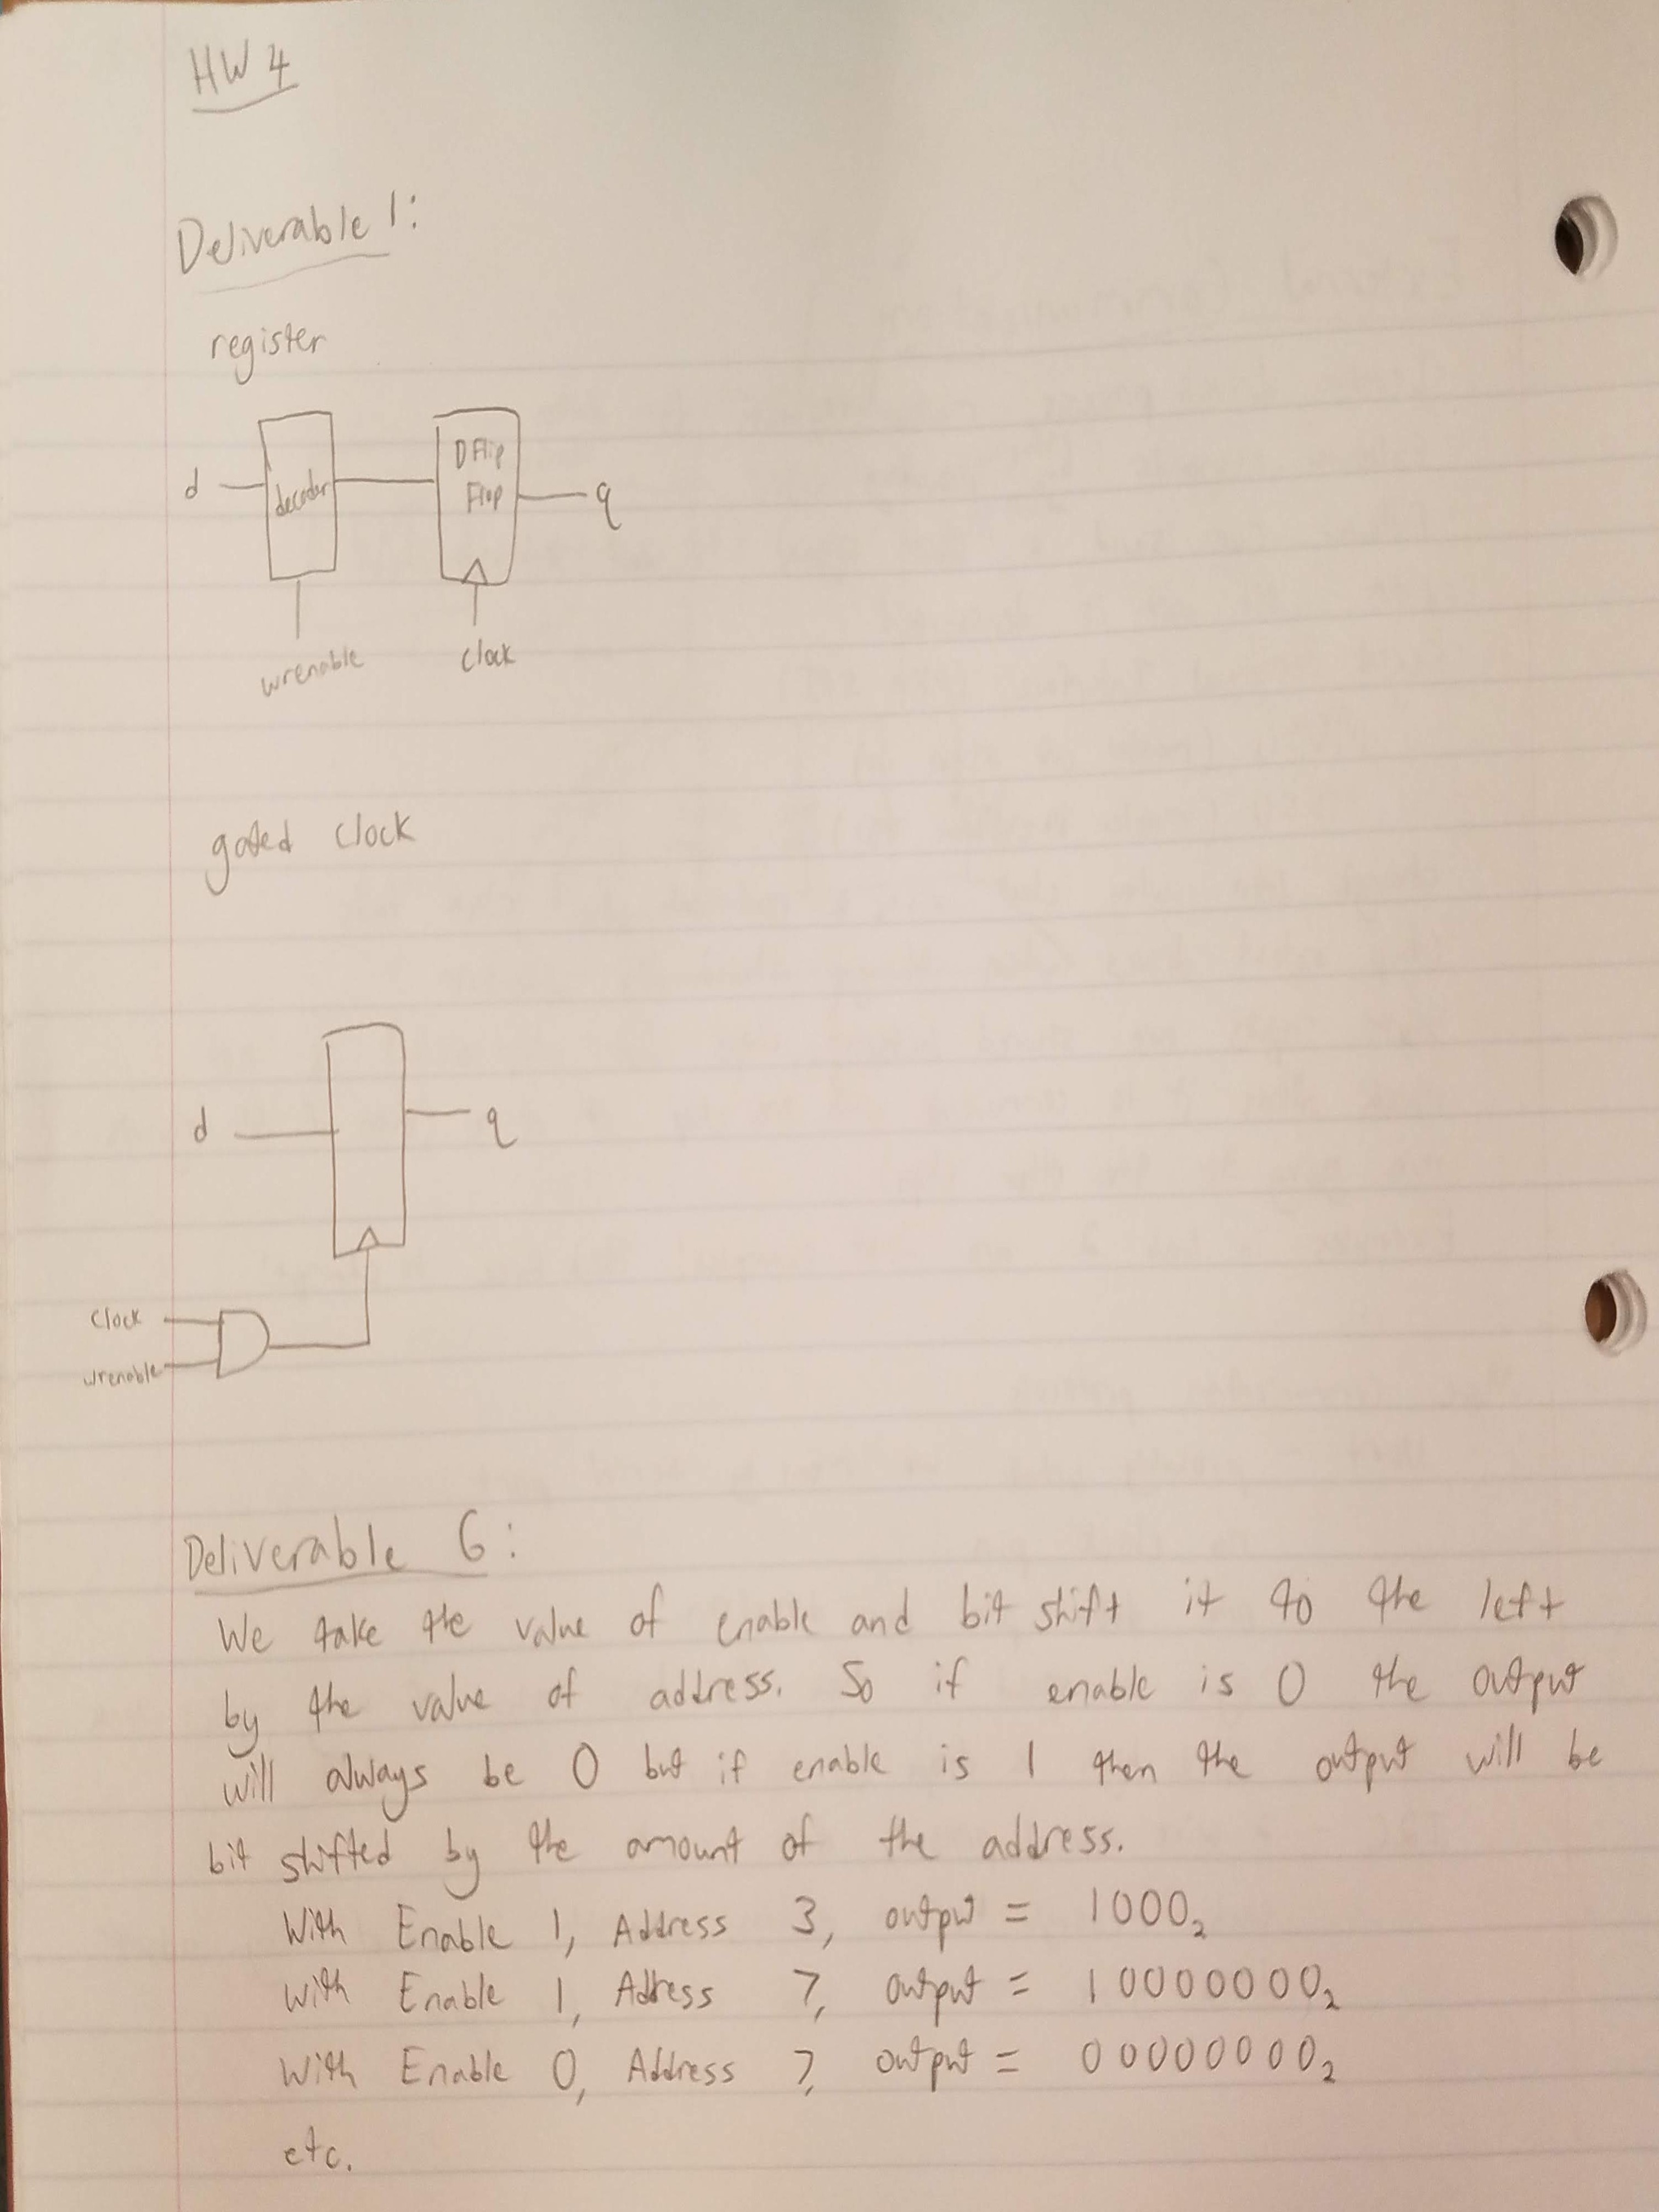 HW 4
Deliverable 1:
register
d decoder D Flip Flop q
wrenable clock
gated clock
d q
clock
wrenable
Deliverable 6:
We take the value of enable and bit shift it to the left
by the value of address. So if enable is 0 the output
will always be 0 but if enable is 1 then the output will be
bit shifted by the amount of the address.
With Enable 1, Address 3, output = 1000₂
With Enable 1, Address 7, output = 10000000₂
With Enable 0, Address 7, output = 00000000₂
etc.